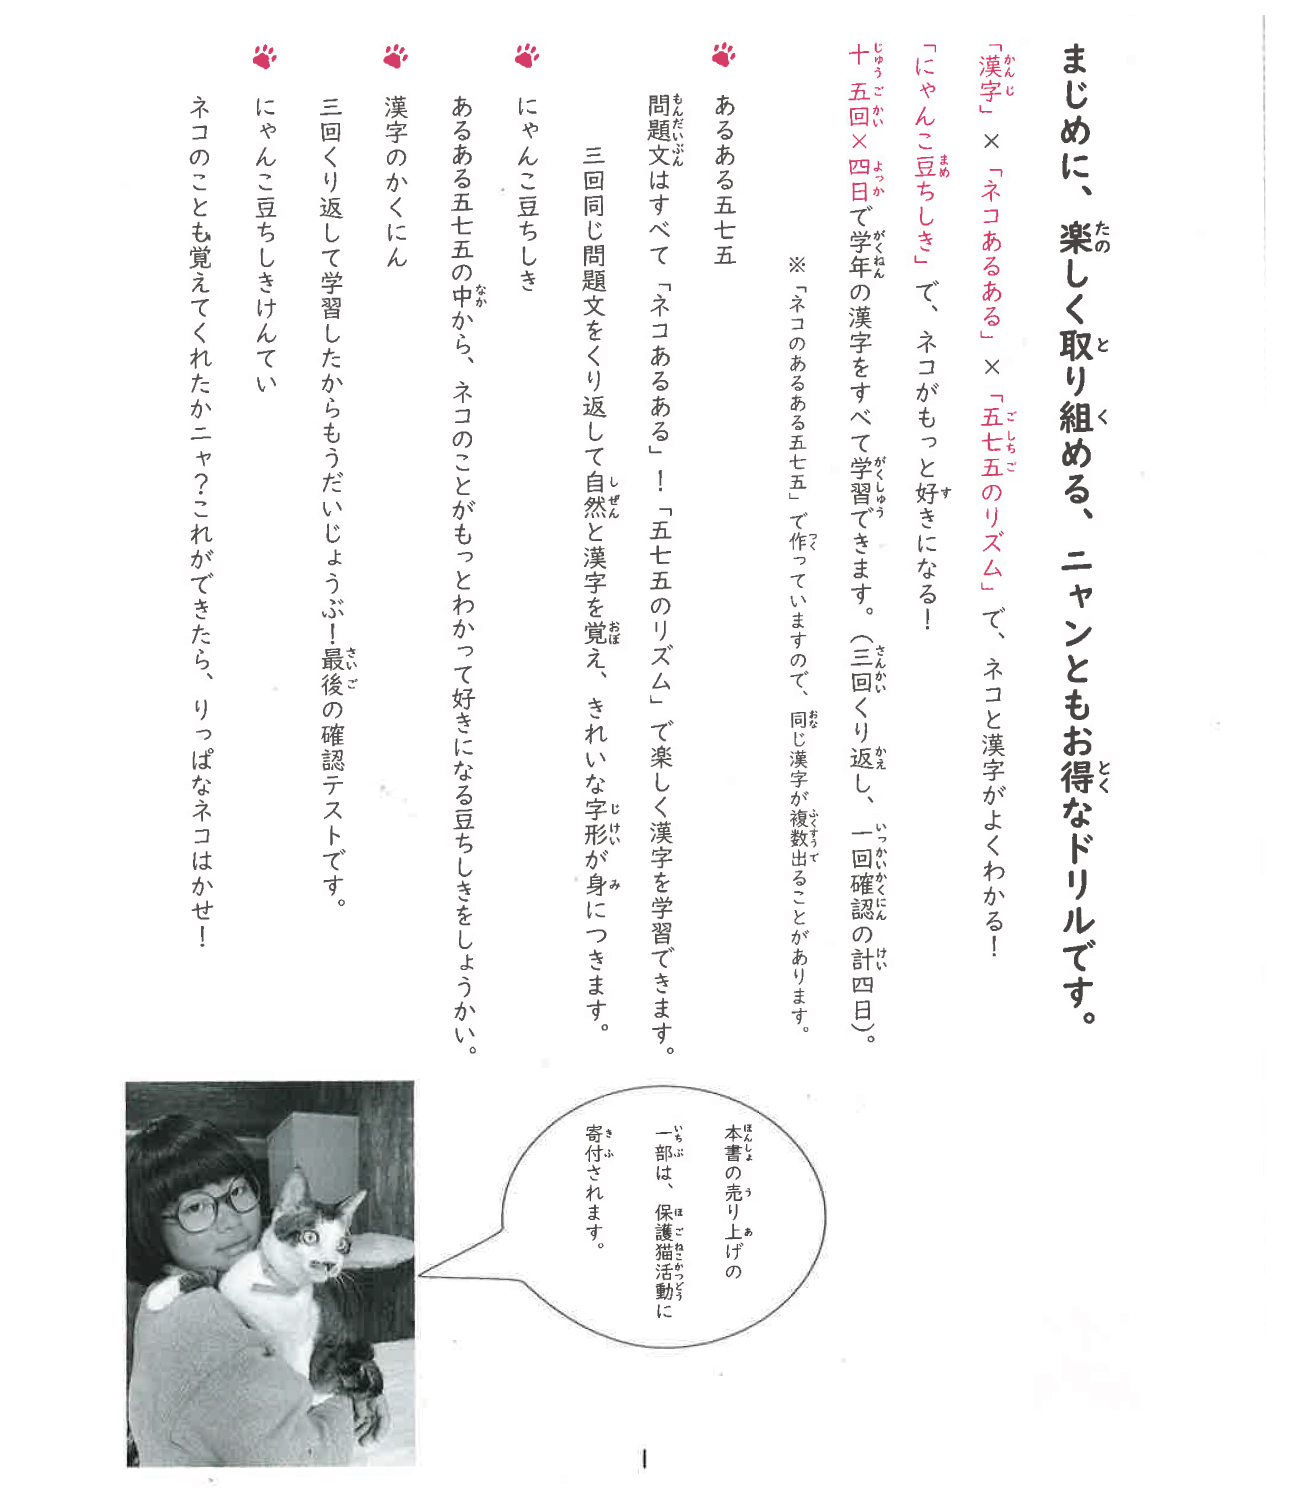 まじめに、楽しく取り組める、ニャンともお得なドリルです。
「漢字」×「ネコあるある」×「五七五のリズム」で、ネコと漢字がよくわかる！
「にゃんこ豆ちしき」で、ネコがもっと好きになる！
十五回×四日で学年の漢字をすべて学習できます。（三回くり返し、一回確認の計四日）。
※「ネコのあるある五七五」で作っていますので、同じ漢字が複数出ることがあります。
あるある五七五
問題文はすべて「ネコあるある」！「五七五のリズム」で楽しく漢字を学習できます。
三回同じ問題文をくり返して自然と漢字を覚え、きれいな字形が身につきます。
にゃんこ豆ちしき
あるある五七五の中から、ネコのことがもっとわかって好きになる豆ちしきをしょうかい。
漢字のかくにん
三回くり返して学習したからもうだいじょうぶ！最後の確認テストです。
にゃんこ豆ちしきけんてい
ネコのことも覚えてくれたかニャ？これができたら、りっぱなネコはかせ！
本書の売り上げの
一部は、保護猫活動に
寄付されます。
1